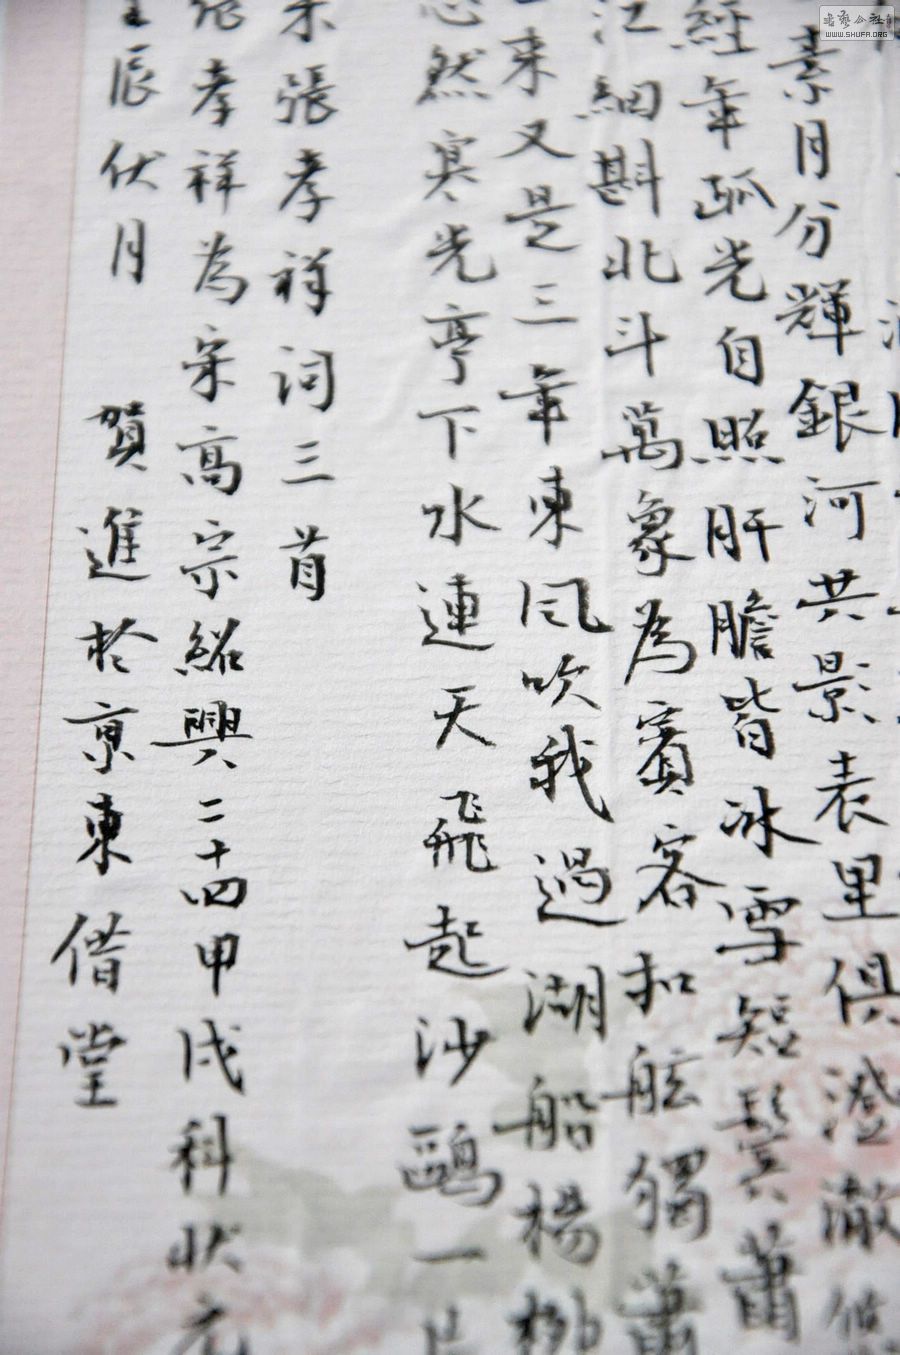 素月分輝銀河共影表里俱澄澈
經年孤光自照肝膽皆冰雪短鬢蕭
江細斟北斗萬象為賓客扣舷獨蕭
來又是三年東風吹我過湖船楊柳
然寒光亭下水連天飛起沙鷗一片
宋張孝祥詞三首
張孝祥為宋高宗紹興二十四甲戌科狀元
辰伏月 賀進於京東借堂
WWW.SHUFA.ORG